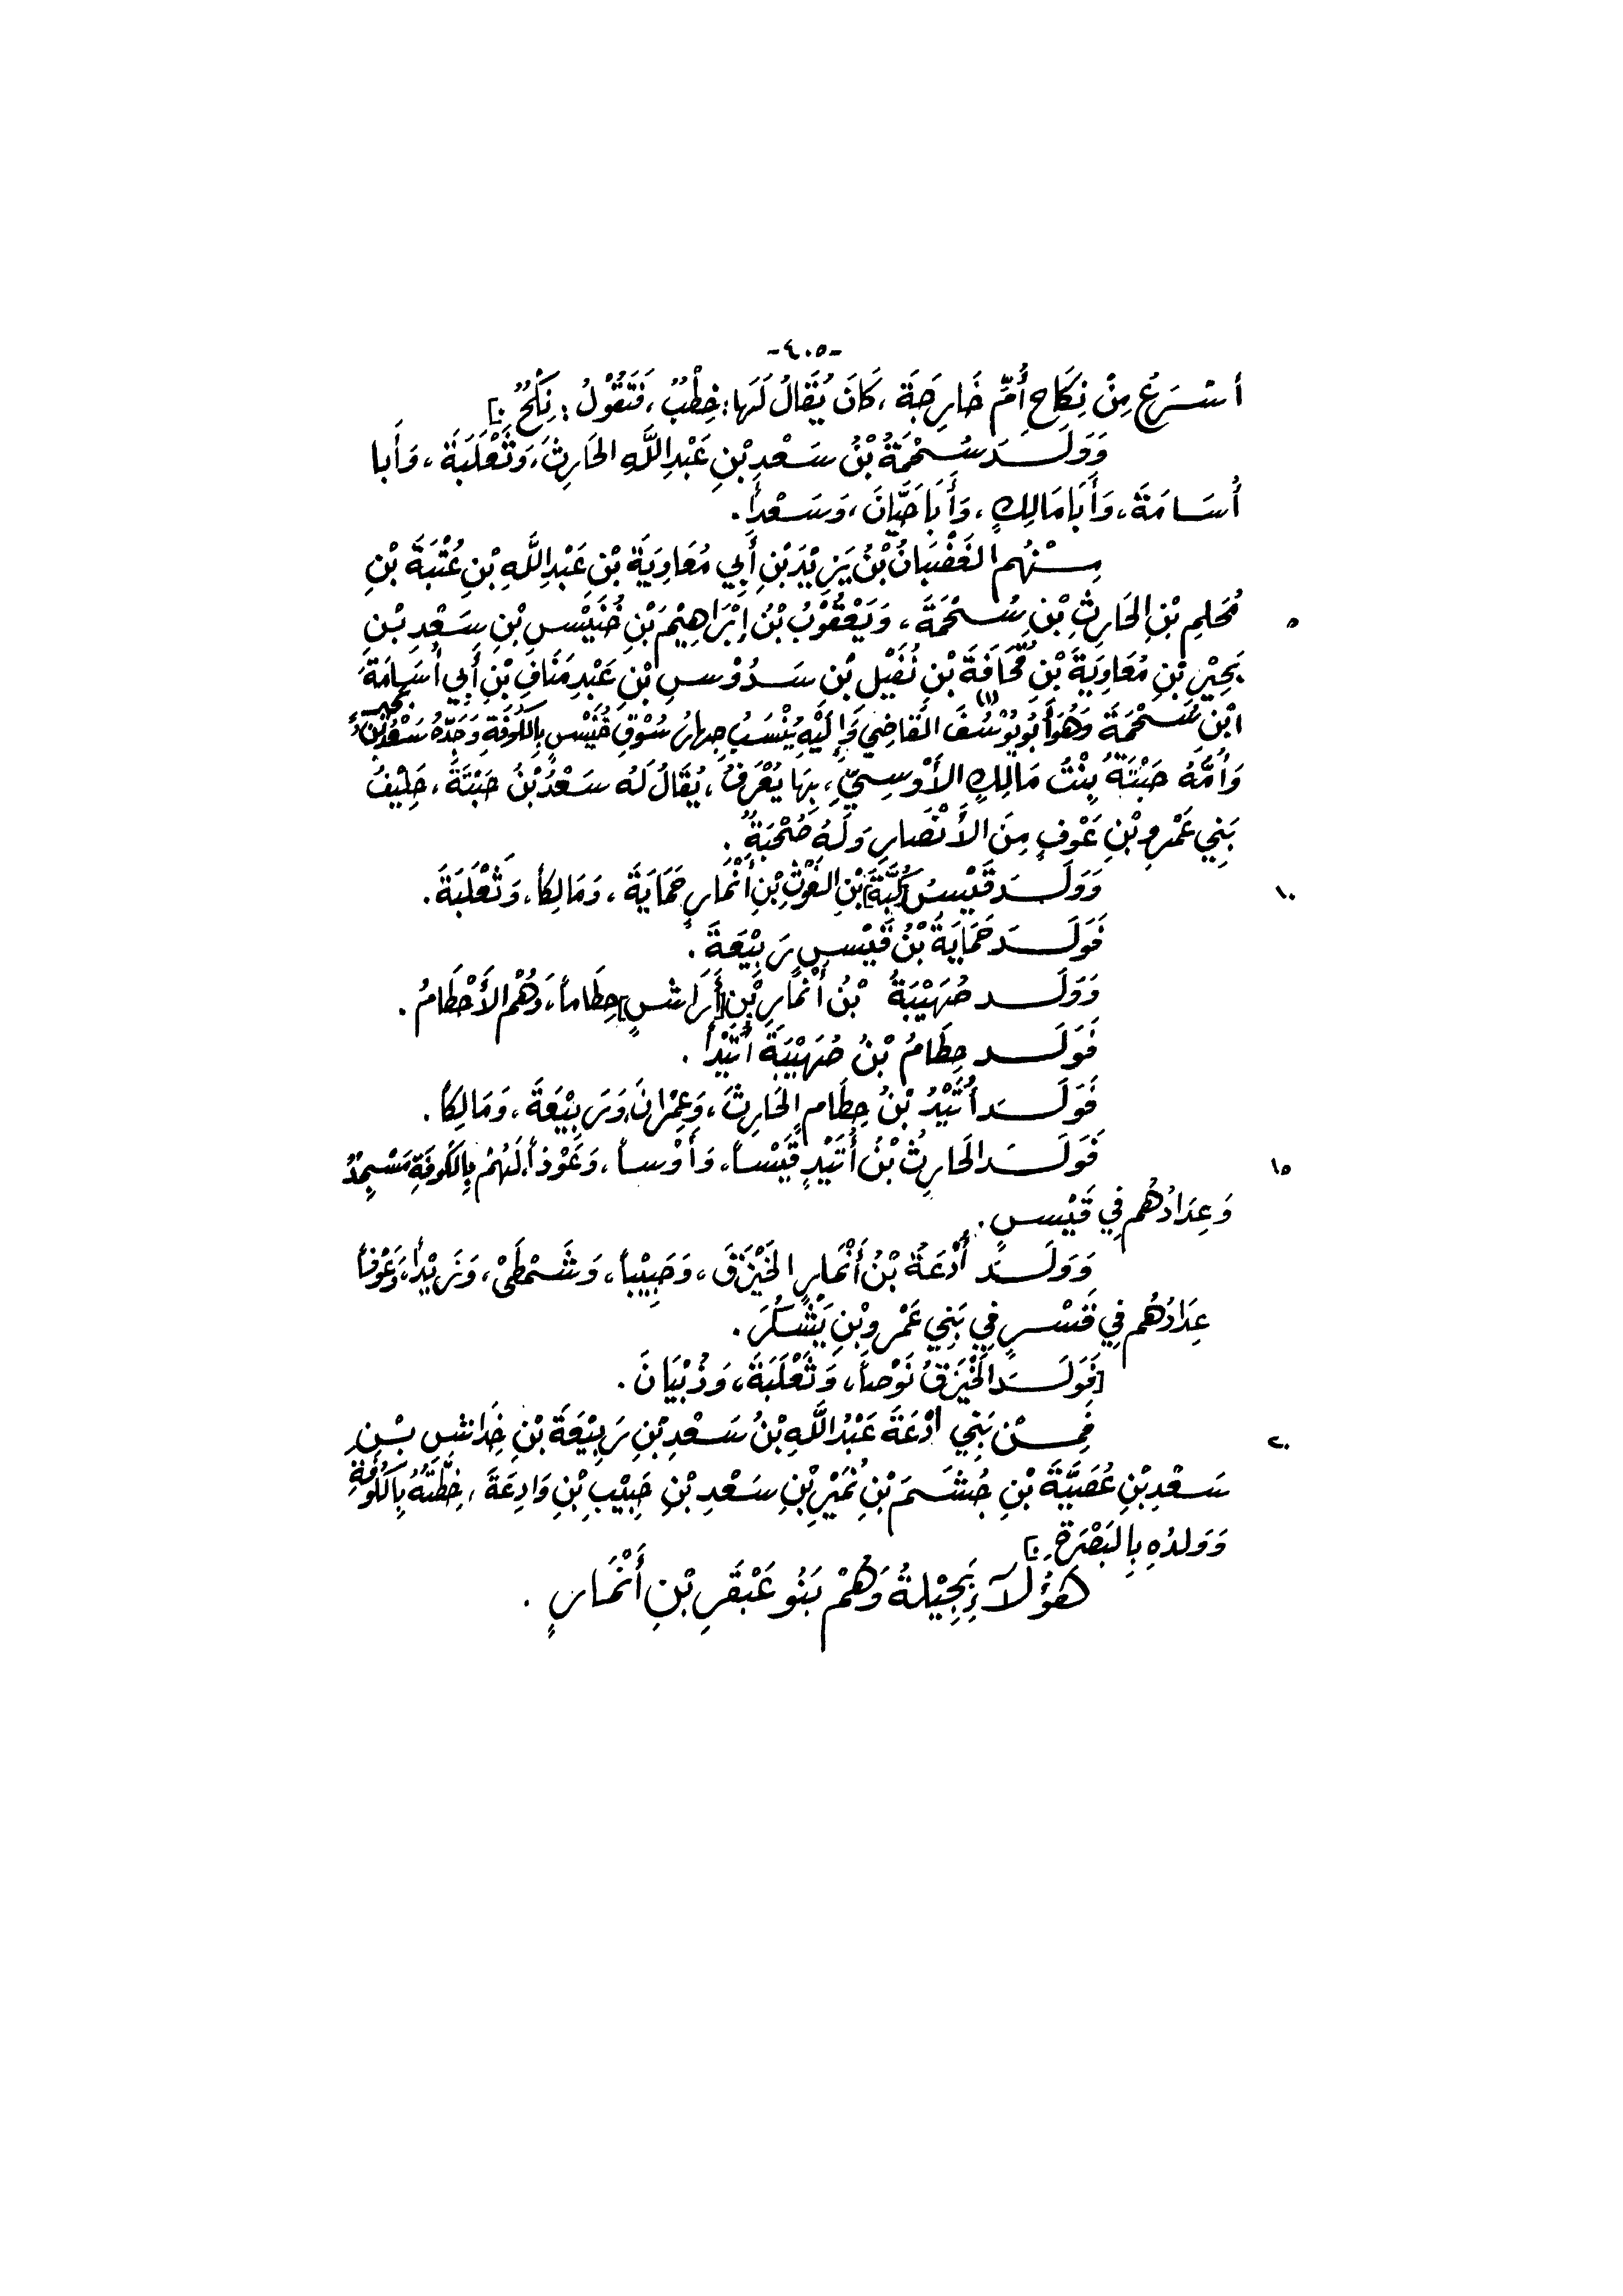 -٤٠٥-
أَسْرَعُ مِنْ نِكَاحِ أُمِّ خَارِجَةَ، كَانَ يُقَالُ لَهَا: خِطْبٌ، فَتَقُولُ: نِكْحٌ.]
وَوَلَدَ سُحْمَةُ بْنُ سَعْدِ بْنِ عَبْدِ اللَّهِ الحَارِثَ، وَثَعْلَبَةَ، وَأَبا
أُسَامَةَ، وَأَبَا مَالِكٍ، وَأَبَا حَيَّانَ، وَسَعْداً.
مِنْهُم الغَضْبَانُ بْنُ يَزِيْدَ بْنِ أَبِي مُعَاوِيَةَ بْنِ عَبْدِ اللَّهِ بْنِ عُتْبَةَ بْنِ
٥ مُحَلِمِ بْنِ الحَارِثِ بْنِ سُحْمَةَ، وَيَعْقُوْبُ بْنُ إِبْرَاهِيْمَ بْنِ خُنَيْسِ بْنِ سَعْدِ بْنِ
بَحِيْرِ بْنِ مُعَاوِيَةَ بْنِ قُحَافَةَ بْنِ نُفَيْلِ بْنِ سَدُوْسِ بْنِ عَبْدِ مَنَافِ بْنِ أَبِي أُسَامَةَ
ابْنِ سُحْمَةَ وَهُوَ أَبُو يُوْسُفَ (١) القَاضِي وَإِلَيْهِ يُنْسَبُ چهار سُوْقِ خُنَيْسٍ بِالكُوفَةِ وَجَدُّهُ سَعْدُ بْنُ بَحِيْرٍ
وَأُمُّهُ حَبْتَةُ بِنْتُ مَالِكٍ الأَوْسِيِّ، بِهَا يُعْرَفُ، يُقَالُ لَهُ سَعْدُ بْنُ حَبْتَةَ، حَلِيْفُ
بَنِي عَمْرِو بْنِ عَوْفٍ مِنَ الأَنْصَارِ وَلَهُ صُحْبَةٌ.
١٠ وَوَلَدَ قَيْسُ [كُبَّةَ] بْنِ الغَوْثِ بْنِ أَنْمَارٍ حَمَايَةَ، وَمَالِكاً، وَثَعْلَبَةَ.
فَوَلَدَ حَمَايَةُ بْنُ قَيْسٍ رَبِيْعَةَ.
وَوَلَد صُهَيْبَةُ بْنُ أَنْمَارِ بْنِ [أَرَاشٍ] حِطَاماً، وَهُم الأَحْطَامُ.
فَوَلَد حِطَامُ بْنُ صُهَيْبَةَ أُتَيْداً.
فَوَلَدَ أُتَيْدُ بْنُ حِطَامٍ الحَارِثَ، وَعِمْرَانَ، وَرَبِيْعَةَ، وَمَالِكاً.
١٥ فَوَلَدَ الحَارِثُ بْنُ أُتَيْدٍ قَيْساً، وَأَوْساً، وَعَوْذاً، لَهُمْ بِالكُوفَةِ مَسْجِدٌ
وَعِدَادُهُم فِي قَيْسٍ.
وَوَلَدَ أَدْعَةُ بْنُ أَنْمَارٍ الخَيْزَقَ، وَحَبِيْباً، وَشَمْطَىْ، وَزَيْداً، وَعَوْفاً
عِدَادُهُم فِي قَسْرٍ فِي بَنِي عَمْرِو بْنِ يَشْكُرَ.
[فَوَلَدَ الخَيْزَقُ نَوْصاً، وَثَعْلَبَةَ، وَذُبْيَانَ.
٢٠ فَمِنْ بَنِي ادْعَةَ عَبْدُ اللَّهِ بْنُ سَعْدِ بْنِ رَبِيْعَةَ بْنِ خِدَاشِ بْنِ
سَعْدِ بْنِ عُصَيَّةَ بْنِ جُشَمَ بْنِ نُمَيْرِ بْنِ سَعْدِ بْنِ حَبِيْبِ بْنِ وَادِعَةَ، خِطَّتُهُ بِالكُوفَةِ
وَوَلدُهِ بِالبَصْرَةِ.]
هَؤُلَآءِ بَجِيْلَةُ وَهُمْ بَنُو عَبْقَرِ بْنِ أَنْمَارٍ.